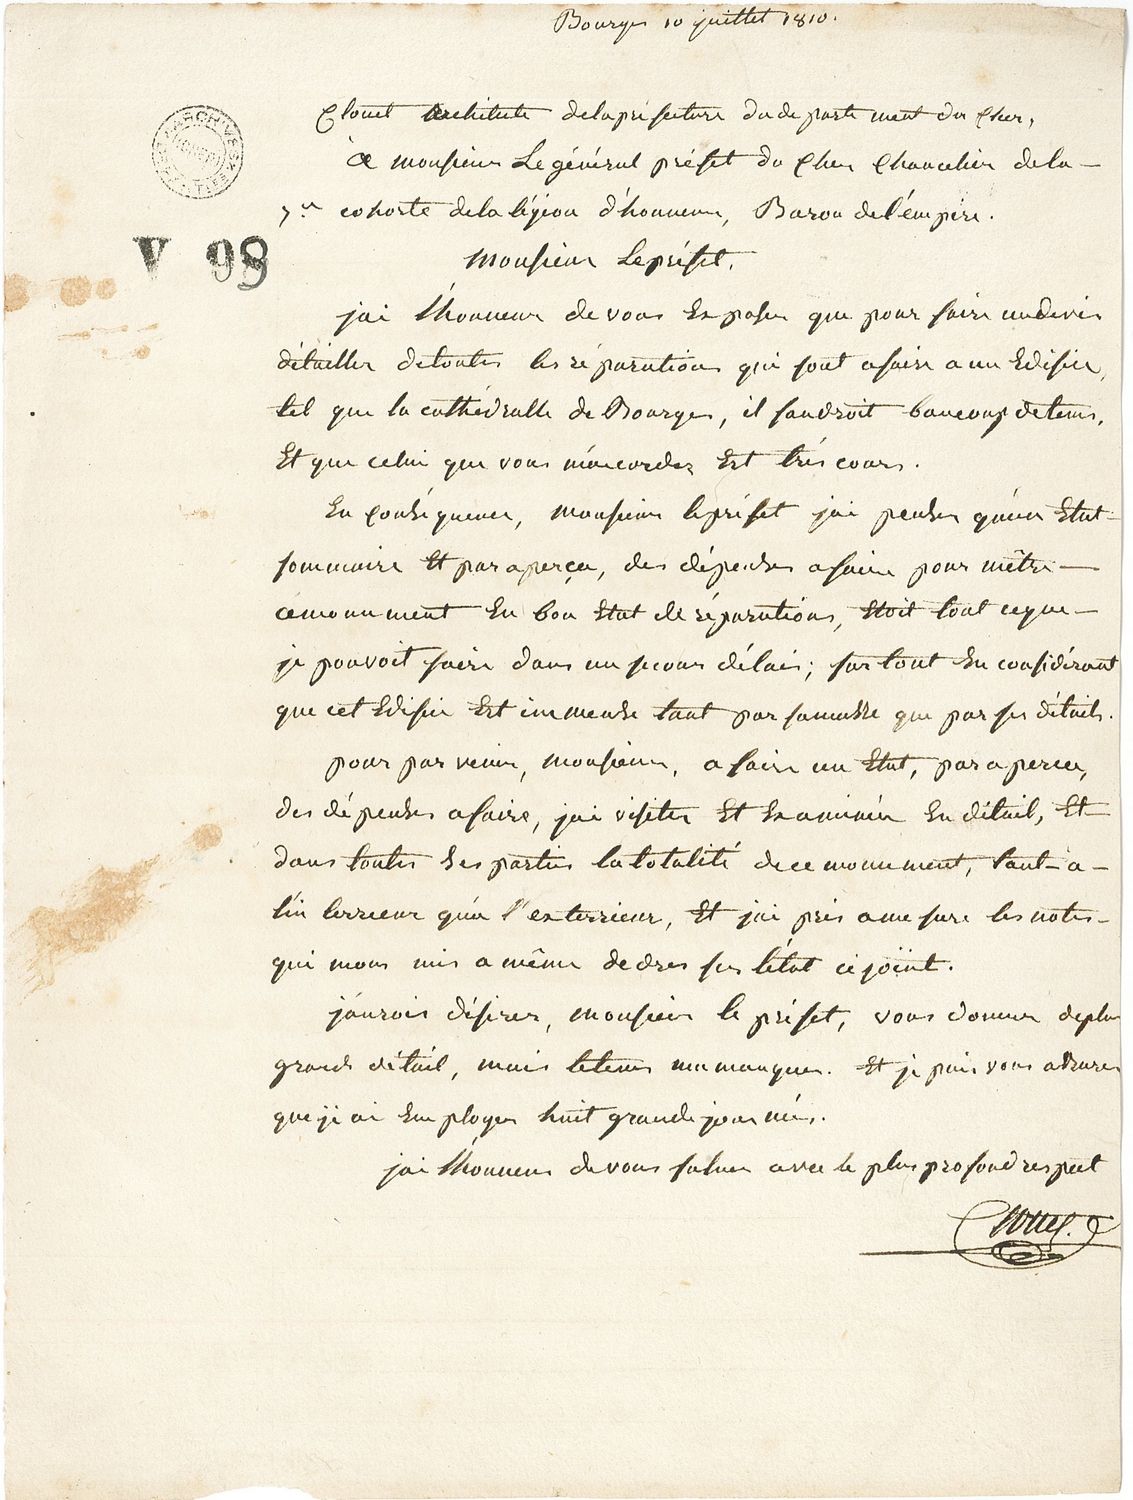 Bourges 10 juillet 1810.
Clouet architecte de la préfecture du departement du Cher,
a monsieur Le général préfet du Cher Chancelier de la
7me cohorte de la légion d'honneur, Baron de l'empire.
V 98
Monsieur Le préfet,
jai l'honneur de vous Exposer que pour faire un devis
détailler de toutes les réparations qui sont a faire a un Edifice,
tel que la cathédralle de Bourges, il faudroit baucoup de tems,
Et que celui que vous m'accordez Est trés cours.
En conséquence, monsieur le préfet jai penser qu'un Etat
sommaire Et par aperçu, des dépenses a faire pour mêtre
ce monument En bon Etat de réparations, Etoit tout ce que
je pouvoit faire dans un si cour délai; sur tout En considérant
que cet Edifice Est immense tant par sa masse que par ses détails.
pour parvenir, monsieur, a faire un Etat, par apercu,
des dépenses a faire, jai visiter Et Examinér En détail, Et
dans toutes Ses parties la totalité de ce monument, tant a
l'interrieur qu'a l'exterrieur, Et jai pris a mesure les notes
qui mons mis a même de dresser l'état ci joint.
j'aurois désirer, monsieur le préfet, vous donner de plus
grands détail, mais le tems ma manquer. Et je puis vous assurer
que j'ai Employer huit grande journées.
jai l'honneur de vous saluer avec le plus profond respect
Clouet.